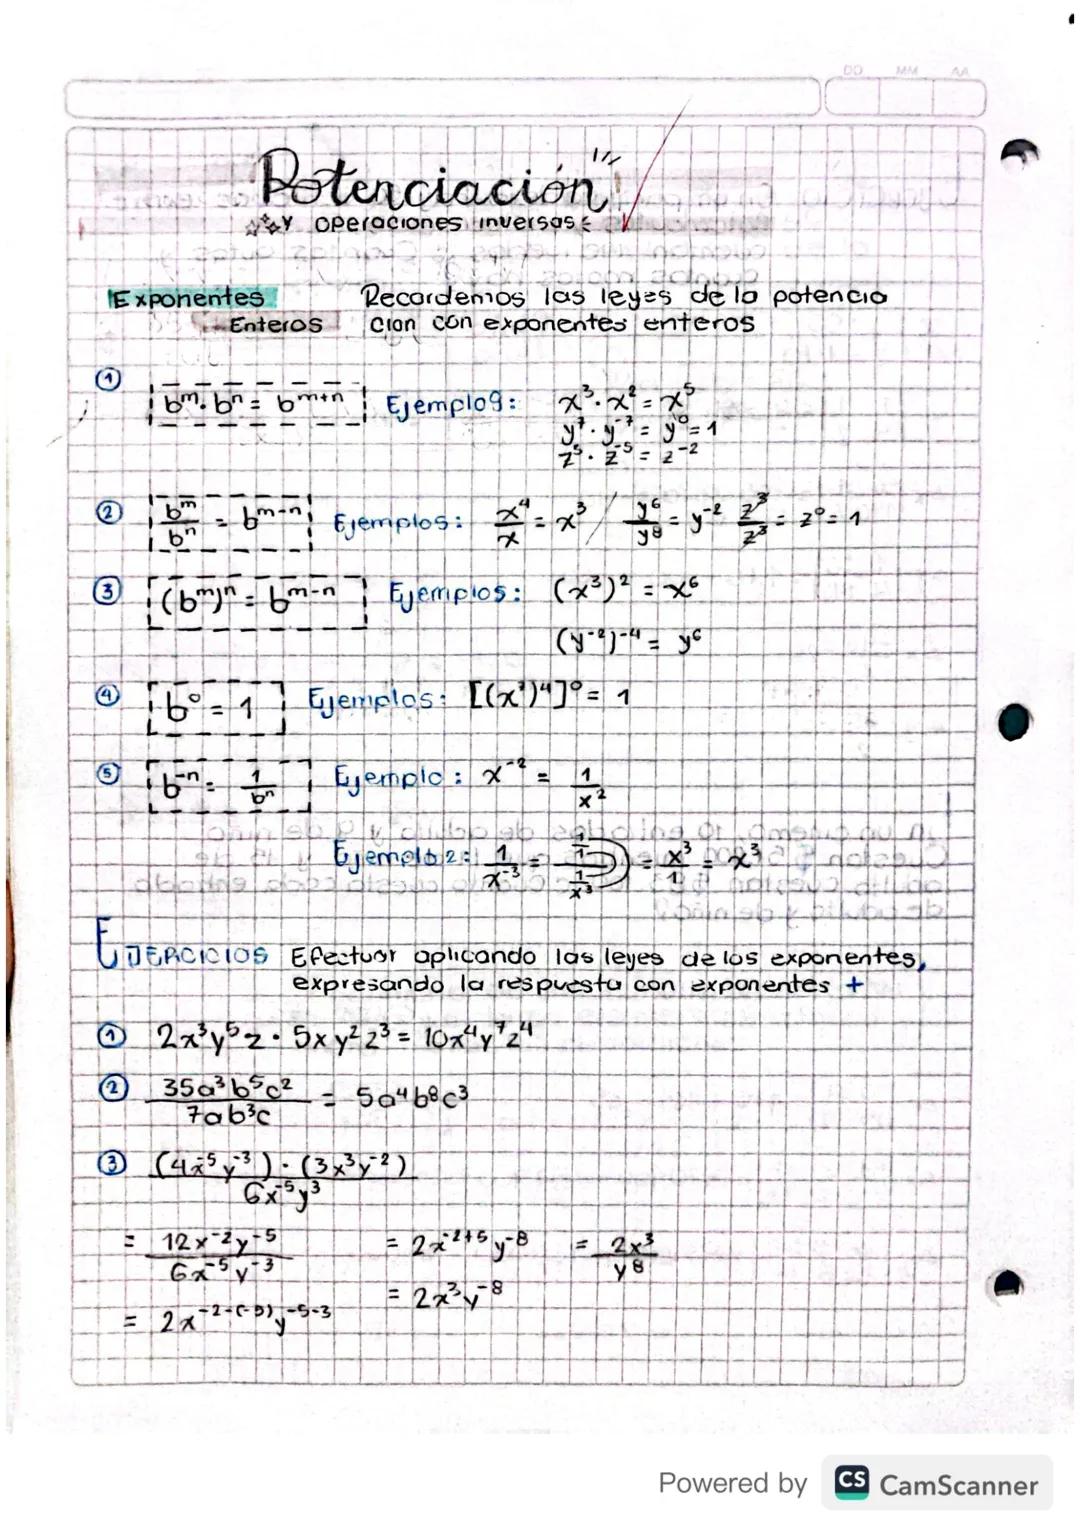 DD MM AA
Potenciación
y operaciones inversas
Exponentes Enteros
Recordemos las leyes de la potencia
cion con exponentes enteros
① b^m · b^n = b^(m+n) Ejemplos: x³ · x² = x⁵
y⁷ · y⁻⁷ = y⁰ = 1
z³ · z⁻⁵ = z⁻²
② b^m/b^n = b^(m-n) Ejemplos: x⁴/x = x³ / y⁶/y⁸ = y⁻² z³/z³ = z⁰ = 1
③ (b^m)^n = b^(m-n) Ejemplos: (x³)² = x⁶
(y⁻²)⁻⁴ = y⁶
④ b⁰ = 1 Ejemplos: [(x³)⁴]⁰ = 1
⑤ b⁻ⁿ = 1/bⁿ Ejemplo: x⁻² = 1/x²
Ejemplo 2: 1/x⁻³ = (1/1)/(1/x³) = x³/1 = x³
EJERCICIOS Efectuar aplicando las leyes de los exponentes,
expresando la respuesta con exponentes +
① 2x³y⁵z · 5xy²z³ = 10x⁴y⁷z⁴
② 35a³b⁵c²/7ab³c = 5a⁴b⁸c³
③ (4x⁻⁵y⁻³) · (3x³y⁻²)/6x⁻⁵y³
= 12x⁻²y⁻⁵/6x⁻⁵y⁻³ = 2x⁻²⁺⁵y⁻⁸ = 2x³/y⁸
= 2x³y⁻⁸
= 2x^(-2-(-5))y^(-5-3)
Powered by CS CamScanner